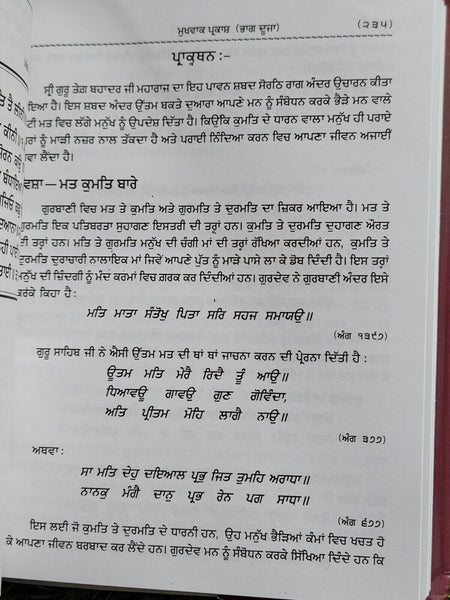 ਮੁਖਵਾਕ ਪ੍ਰਕਾਸ਼ (ਭਾਗ ਦੂਜਾ)
(੨੩੫)
ਪ੍ਰਾਕਥਨ :-
ਸ੍ਰੀ ਗੁਰੂ ਤੇਗ ਬਹਾਦਰ ਜੀ ਮਹਾਰਾਜ ਦਾ ਇਹ ਪਾਵਨ ਸ਼ਬਦ ਸੋਰਠਿ ਰਾਗ ਅੰਦਰ ਉਚਾਰਨ ਕੀਤਾ
ਇਆ ਹੈ। ਇਸ ਸ਼ਬਦ ਅੰਦਰ ਉੱਤਮ ਬਕਤੇ ਦੁਆਰਾ ਆਪਣੇ ਮਨ ਨੂੰ ਸੰਬੋਧਨ ਕਰਕੇ ਭੈੜੇ ਮਨ ਵਾਲੇ
ਟੀ ਮਤ ਵਿਚ ਲੱਗੇ ਮਨੁੱਖ ਨੂੰ ਉਪਦੇਸ਼ ਦਿੱਤਾ ਹੈ। ਕਿਉਕਿ ਕੁਮਤਿ ਦੇ ਧਾਰਨ ਵਾਲਾ ਮਨੁੱਖ ਹੀ ਪਰਾਏ
ਰਾਂ ਨੂੰ ਮਾੜੀ ਨਜ਼ਰ ਨਾਲ ਤੱਕਦਾ ਹੈ ਅਤੇ ਪਰਾਈ ਨਿੰਦਿਆ ਕਰਨ ਵਿਚ ਆਪਣਾ ਜੀਵਨ ਅਜਾਈਂ
ਵਾ ਲੈਂਦਾ ਹੈ।
ਵਸ਼ਾ — ਮਤ ਕੁਮਤਿ ਬਾਰੇ
ਗੁਰਬਾਣੀ ਵਿਚ ਮਤ ਤੇ ਕੁਮਤਿ ਅਤੇ ਗੁਰਮਤਿ ਤੇ ਦੁਰਮਤਿ ਦਾ ਜ਼ਿਕਰ ਆਇਆ ਹੈ। ਮਤ ਤੇ
ਰਮਤਿ ਇਕ ਪਤਿਬਰਤਾ ਸੁਹਾਗਣ ਇਸਤਰੀ ਦੀ ਤਰ੍ਹਾਂ ਹਨ। ਕੁਮਤਿ ਤੇ ਦੁਰਮਤਿ ਦੁਹਾਗਣ ਔਰਤ
ਤੀ ਤਰ੍ਹਾਂ ਹਨ। ਮਤਿ ਤੇ ਗੁਰਮਤਿ ਮਨੁੱਖ ਦੀ ਚੰਗੀ ਮਾਂ ਦੀ ਤਰ੍ਹਾਂ ਰੱਖਿਆ ਕਰਦੀਆਂ ਹਨ, ਕੁਮਤਿ ਤੇ
ਰਮਤਿ ਦੁਰਾਚਾਰੀ ਨਾਲਾਇਕ ਮਾਂ ਜਿਵੇਂ ਆਪਣੇ ਪੁੱਤ ਨੂੰ ਮਾੜੇ ਪਾਸੇ ਲਾ ਕੇ ਡੋਬ ਦਿੰਦੀ ਹੈ। ਇਸ ਤਰ੍ਹਾਂ
ਨੁੱਖ ਦੀ ਜ਼ਿੰਦਗੀ ਨੂੰ ਮੰਦ ਕਰਮਾਂ ਵਿਚ ਗ਼ਰਕ ਕਰ ਦਿੰਦੀਆਂ ਹਨ। ਗੁਰਦੇਵ ਨੇ ਗੁਰਬਾਣੀ ਅੰਦਰ ਇਸੇ
ਰਕੇ ਕਿਹਾ ਹੈ :
ਮਤਿ ਮਾਤਾ ਸੰਤੋਖੁ ਪਿਤਾ ਸਰਿ ਸਹਜ ਸਮਾਯਉ॥
(ਅੰਗ ੧੩੯੭)
ਗੁਰੂ ਸਾਹਿਬ ਜੀ ਨੇ ਐਸੀ ਉੱਤਮ ਮਤ ਦੀ ਥਾਂ ਥਾਂ ਜਾਚਨਾ ਕਰਨ ਦੀ ਪ੍ਰੇਰਨਾ ਦਿੱਤੀ ਹੈ :
ਊਤਮ ਮਤਿ ਮੇਰੈ ਰਿਦੈ ਤੂੰ ਆਉ॥
ਧਿਆਵਉ ਗਾਵਉ ਗੁਣ ਗੋਵਿੰਦਾ,
ਅਤਿ ਪ੍ਰੀਤਮ ਮੋਹਿ ਲਾਗੈ ਨਾਉ॥
(ਅੰਗ ੩੭੭)
ਅਥਵਾ :
ਸਾ ਮਤਿ ਦੇਹੁ ਦਇਆਲ ਪ੍ਰਭ ਜਿਤ ਤੁਮਹਿ ਅਰਾਧਾ॥
ਨਾਨਕੁ ਮੰਗੈ ਦਾਨੁ ਪ੍ਰਭ ਰੇਨ ਪਗ ਸਾਧਾ॥
(ਅੰਗ ੬੭੭)
ਇਸ ਲਈ ਜੋ ਕੁਮਤਿ ਤੇ ਦੁਰਮਤਿ ਦੇ ਧਾਰਨੀ ਹਨ, ਉਹ ਮਨੁੱਖ ਭੈੜਿਆਂ ਕੰਮਾਂ ਵਿਚ ਖਚਤ ਹੋ
ਕੇ ਆਪਣਾ ਜੀਵਨ ਬਰਬਾਦ ਕਰ ਲੈਂਦੇ ਹਨ। ਗੁਰਦੇਵ ਮਨ ਨੂੰ ਸੰਬੋਧਨ ਕਰਕੇ ਸਿੱਖਿਆ ਦਿੰਦੇ ਹਨ ਕਿ